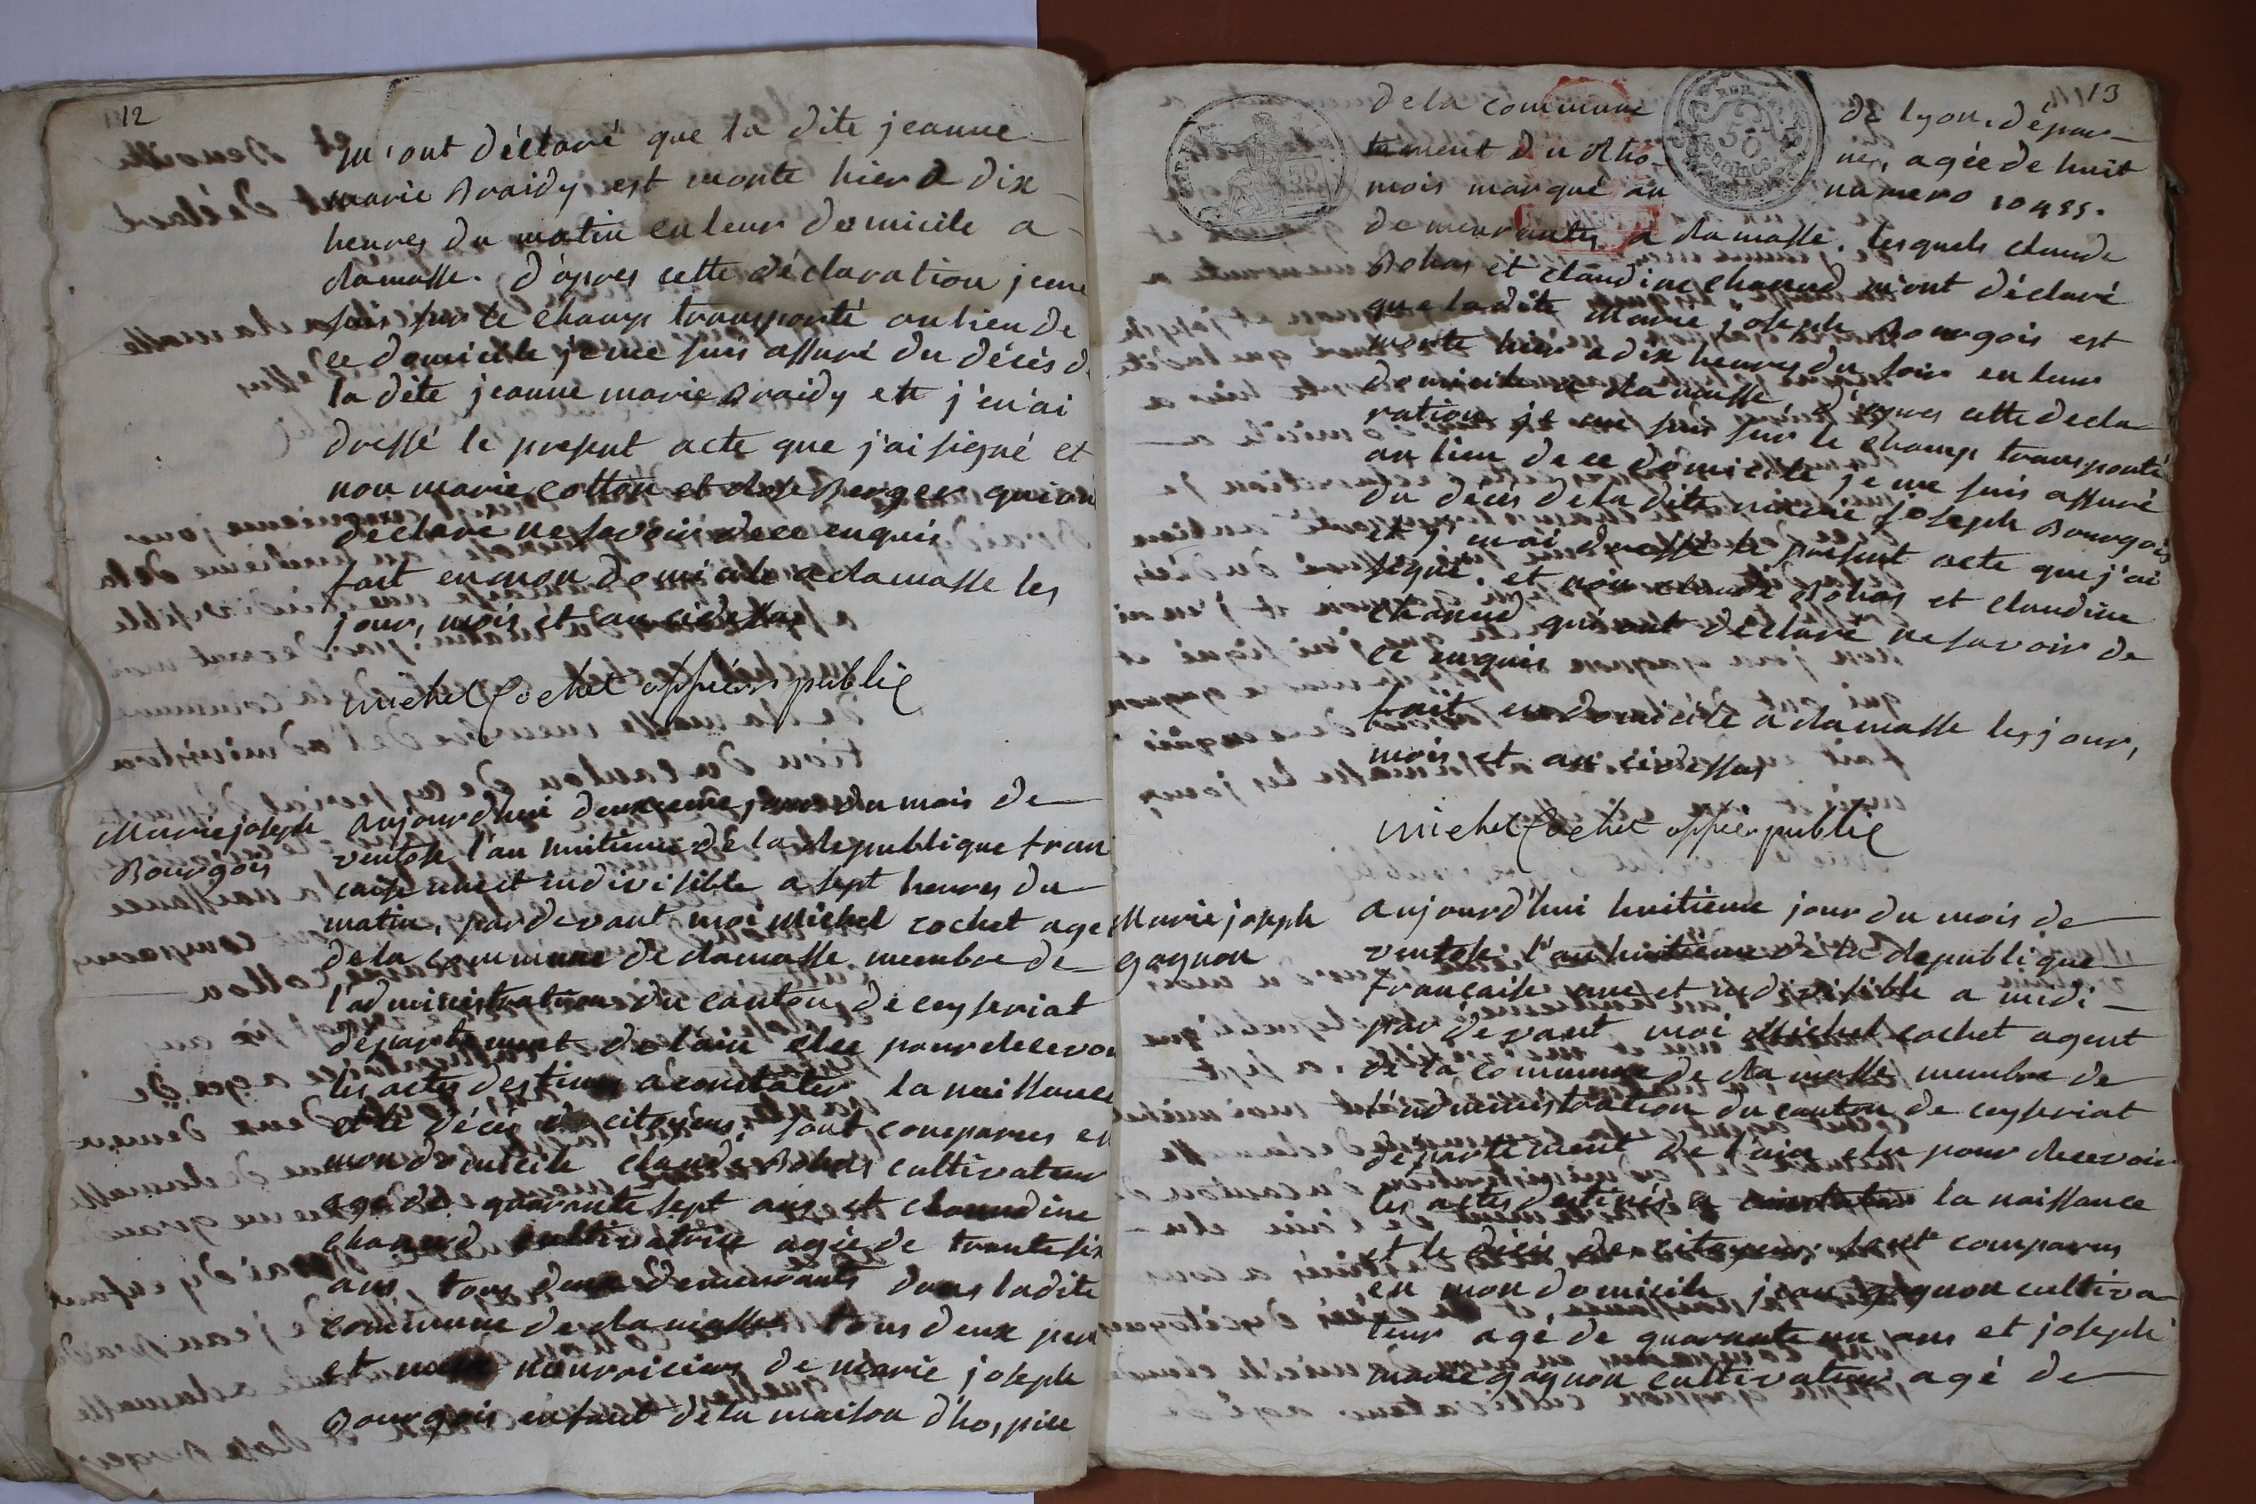 12
m'ont déclaré que la dite jeanne
marie Braidy est morte hier a dix
heures du matin en leur domicile a
Ramasse. d'après cette déclaration je me
suis sur le champ transporté au lieu de
ce domicile je me suis assuré du décès de
la dite jeanne marie Braidy et j'en ai
dressé le present acte que j'ai signé et
non marie cotton et Rose Berger qui ont
déclaré ne savoir de ce enquis
fait en mon domicile a Ramasse les
jour, mois et an ci dessus
michel Cochet officier public
Marie joseph
Bourgois
aujourd'hui deuxieme jour du mois de
ventose l'an huitieme de la Republique fran
caise une et indivisible a sept heures du
matin, pardevant moi Michel cochet age
de la commune de Ramasse membre de
l'administration du canton de ceyseriat
departement de l'ain elee pour Recevoi
les actes destines a constater la naissance
et le décès des citoyens, sont comparus en
mon domicile claude Bohas cultivateur
agé de quarante sept ans et claudine
chanud cultivatrice agée de trente six
ans tous deux demeurants dans ladite
commune de Ramasse tous deux per
et mere nourriciers de marie joseph
Bourgois enfant de la maison d'hospice
13
de la commune de lyon. dépar
tement du Rho ne, agée de huit
mois marqué au numero 10485.
demeurantes a Ramasse. lesquels claude
Bohas et claudine chanud m'ont déclaré
que ladite Marie joseph Bourgois est
morte hier a dix heures du soir en leur
domicile a Ramasse, d'apres cette decla
ration je me suis sur le champ transporté
au lieu de ce domicile je me suis assuré
du décès de la dite marie joseph Bourgois
et j'en ai dressé le present acte que j'ai
signé. et non claude Bohas et claudine
chanud qui ont déclaré ne savoir de
ce enquis
fait en domicile a Ramasse les jour,
mois et an ci dessus
michel Cochet officier public
Marie joseph
gagnon
aujourd'hui huitieme jour du mois de
ventose l'an huitieme de la Republique
francaise une et indivisible a midi
par devant moi Michel cochet agent
de la commune de Ramasse membre de
l'administration du canton de ceyseriat
departement de l'ain elu pour Recevoir
les actes destinés a constater la naissance
et le décès des citoyens sont comparus
en mon domicile jean gagnon cultiva
teur agé de quarante un ans et joseph
marie gagnon cultivateur agé de